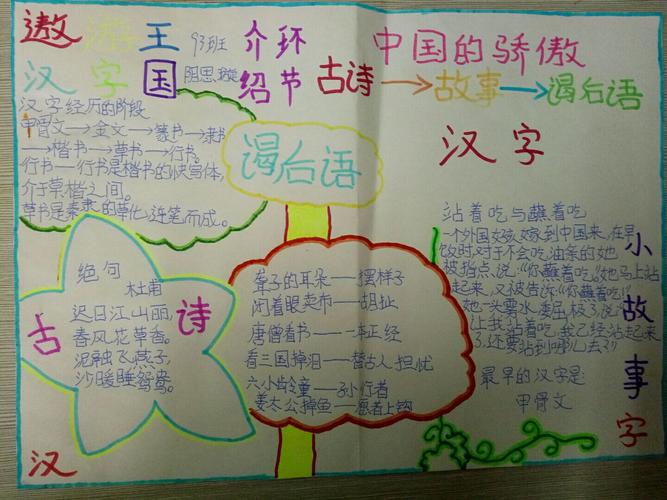 遨游王国
汉字
93班
阴思璇
介绍环节
古诗→故事→谒后语
中国的骄傲
汉字
汉字经历的阶段
甲骨文→金文→篆书→隶书
→楷书→草书→行书。
行书—行书是楷书的快写体,
介于草楷之间。
草书是秦隶的草化,连笔而成。
谒后语
古诗
绝句
杜甫
迟日江山丽,
春风花草香。
泥融飞燕子,
沙暖睡鸳鸯。
聋子的耳朵——摆样子
闭着眼卖布——胡扯
唐僧看书——一本正经
看三国掉泪——替古人担忧
六小龄童——孙行者
姜太公掉鱼——愿者上钩
站着吃与蘸着吃
一个外国女孩,嫁到中国来,在早
饭时,对于不会吃油条的她
被指点,说:“你蘸着吃。”她马上站
起来,又被告诉“你蘸着吃!”
她一头雾水,委屈极了,说:
让我站着吃,我已经站起来
了,还要站到哪儿去?!
最早的汉字是
甲骨文
小故事
汉
字